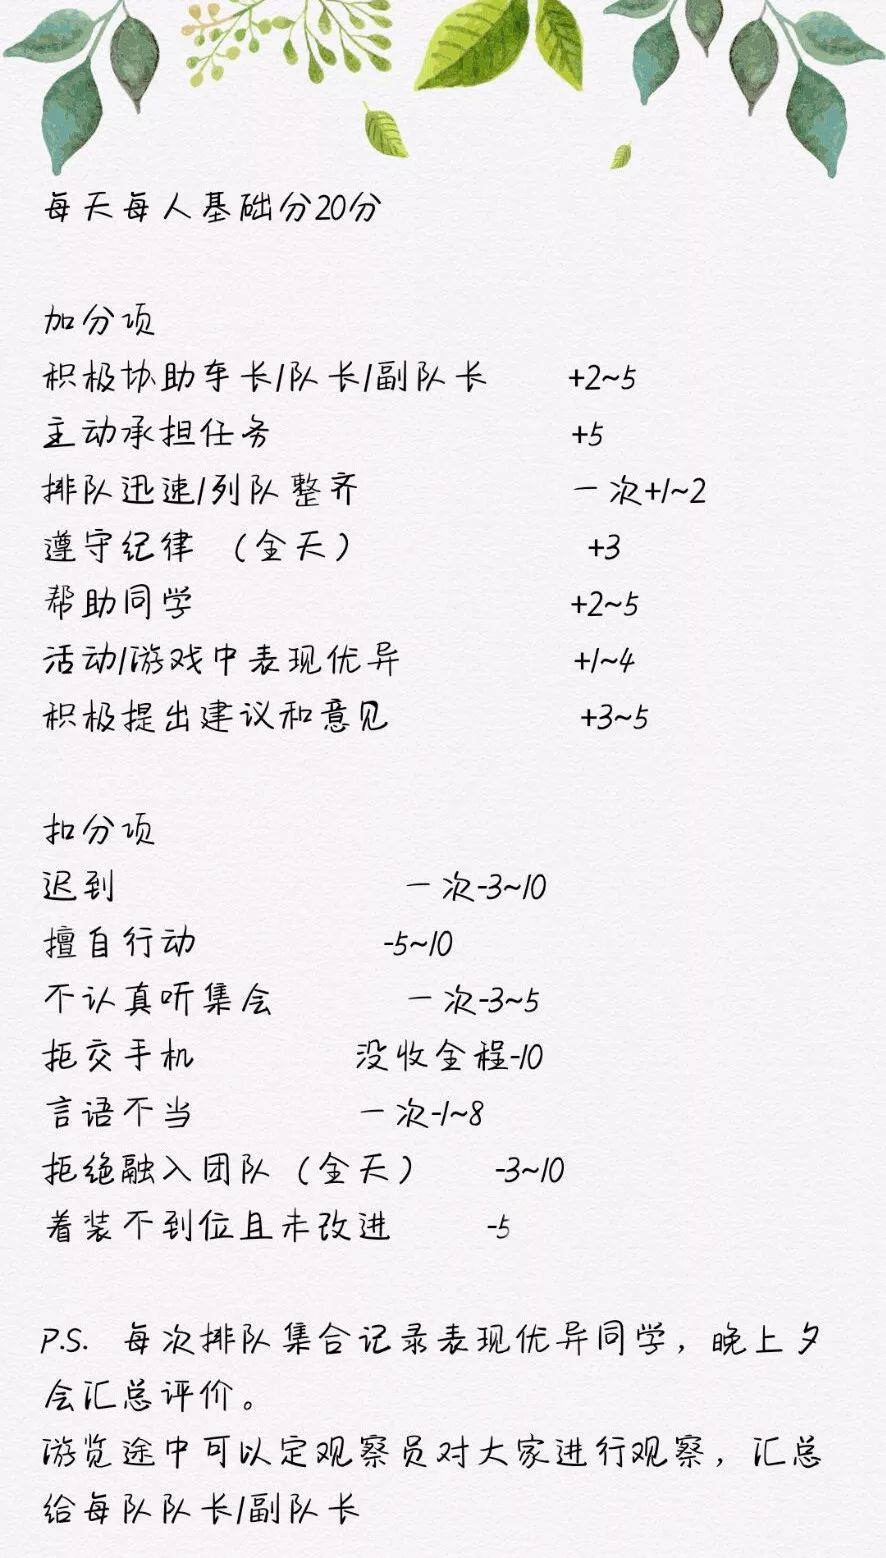 每天每人基础分20分
加分项
积极协助车长/队长/副队长 +2~5
主动承担任务 +5
排队迅速/列队整齐 一次+1~2
遵守纪律 （全天） +3
帮助同学 +2~5
活动/游戏中表现优异 +1~4
积极提出建议和意见 +3~5
扣分项
迟到 一次-3~10
擅自行动 -5~10
不认真听集会 一次-3~5
拒交手机 没收全程-10
言语不当 一次-1~8
拒绝融入团队（全天） -3~10
着装不到位且未改进 -5
P.S. 每次排队集合记录表现优异同学，晚上夕
会汇总评价。
游览途中可以定观察员对大家进行观察，汇总
给每队队长/副队长